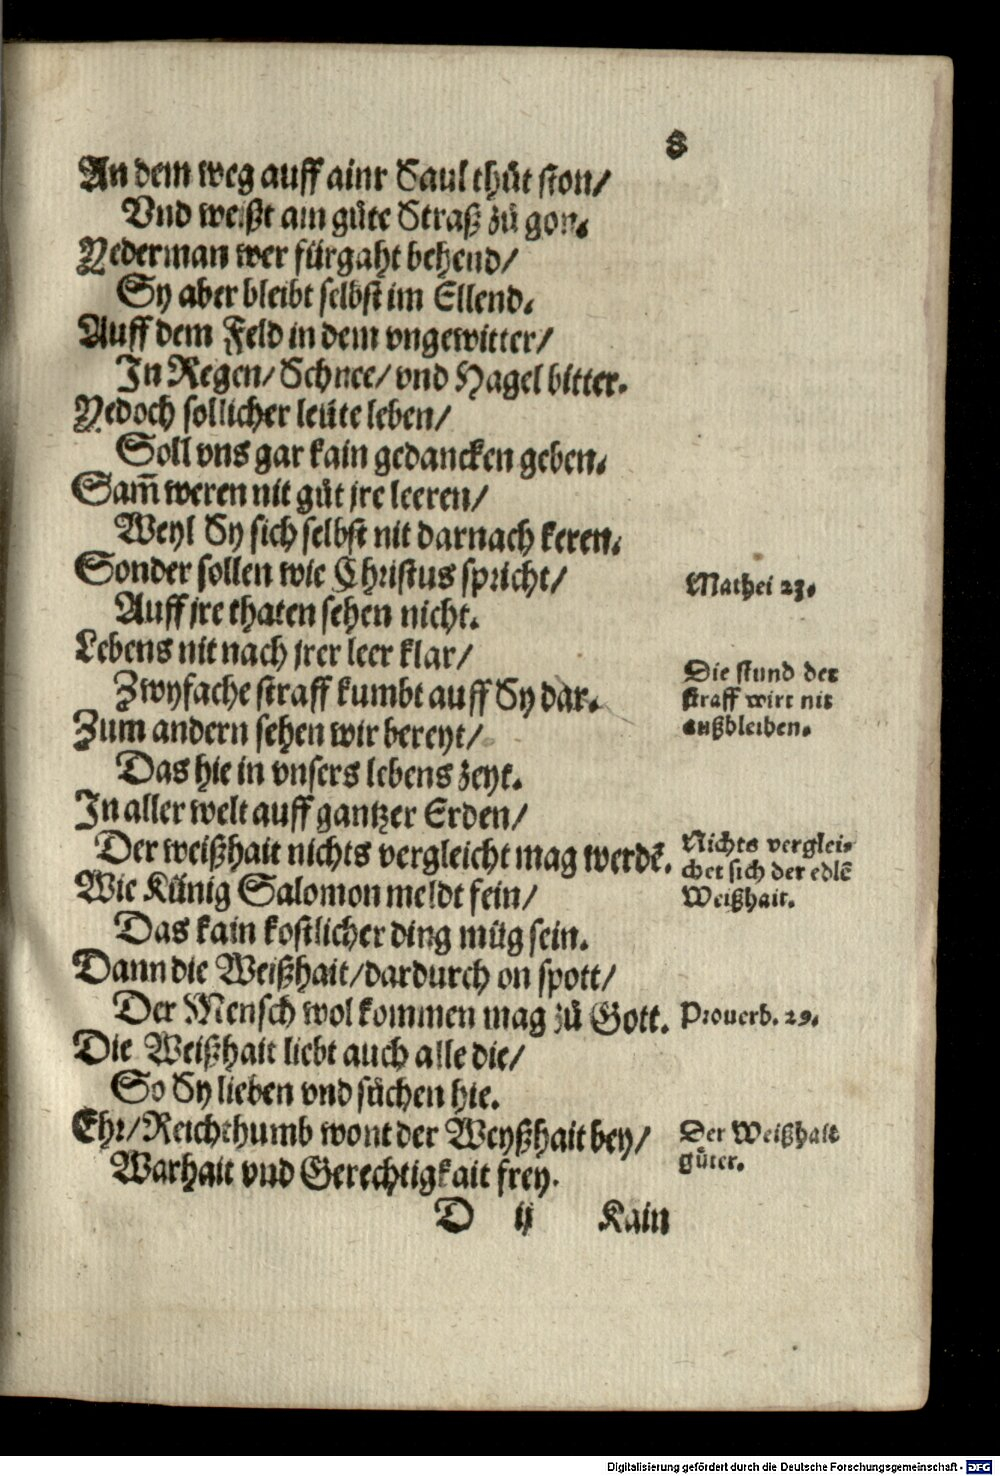 8
An dem weg auff ainr Saul thůt ston/
Vnd weißt ain gůte Straß zů gon.
Yederman wer fürgaht behend/
Sy aber bleibt selbst im Ellend.
Auff dem Feld in dem vngewitter/
In Regen/ Schnee/ vnd Hagel bitter.
Yedoch sollicher leüte leben/
Soll vns gar kain gedancken geben.
Sam̃ weren nit gůt jre leeren/
Weyl Sy sich selbst nit darnach keren.
Sonder sollen wie Christus spricht/
Auff jre thaten sehen nicht.
Mathei 23.
Lebens nit nach jrer leer klar/
Zwyfache straff kumbt auff Sy dar.
Die stund der
straff wirt nit
außbleiben.
Zum andern sehen wir bereyt/
Das hie in vnsers lebens zeyt.
In aller welt auff gantzer Erden/
Der weißhait nichts vergleicht mag werdẽ.
Nichts verglei-
chet sich der edlẽ
Weißhait.
Wie Künig Salomon meldt fein/
Das kain kostlicher ding müg sein.
Dann die Weißhait/ dardurch on spott/
Der Mensch wol kommen mag zů Gott.
Prouerb. 29.
Die Weißhait liebt auch alle die/
So Sy lieben vnd sůchen hie.
Ehr/ Reichthumb wont der Weyßhait bey/
Warhait vnd Gerechtigkait frey.
Der Weißhait
gůter.
D ij Kain
Digitalisierung gefördert durch die Deutsche Forschungsgemeinschaft - DFG